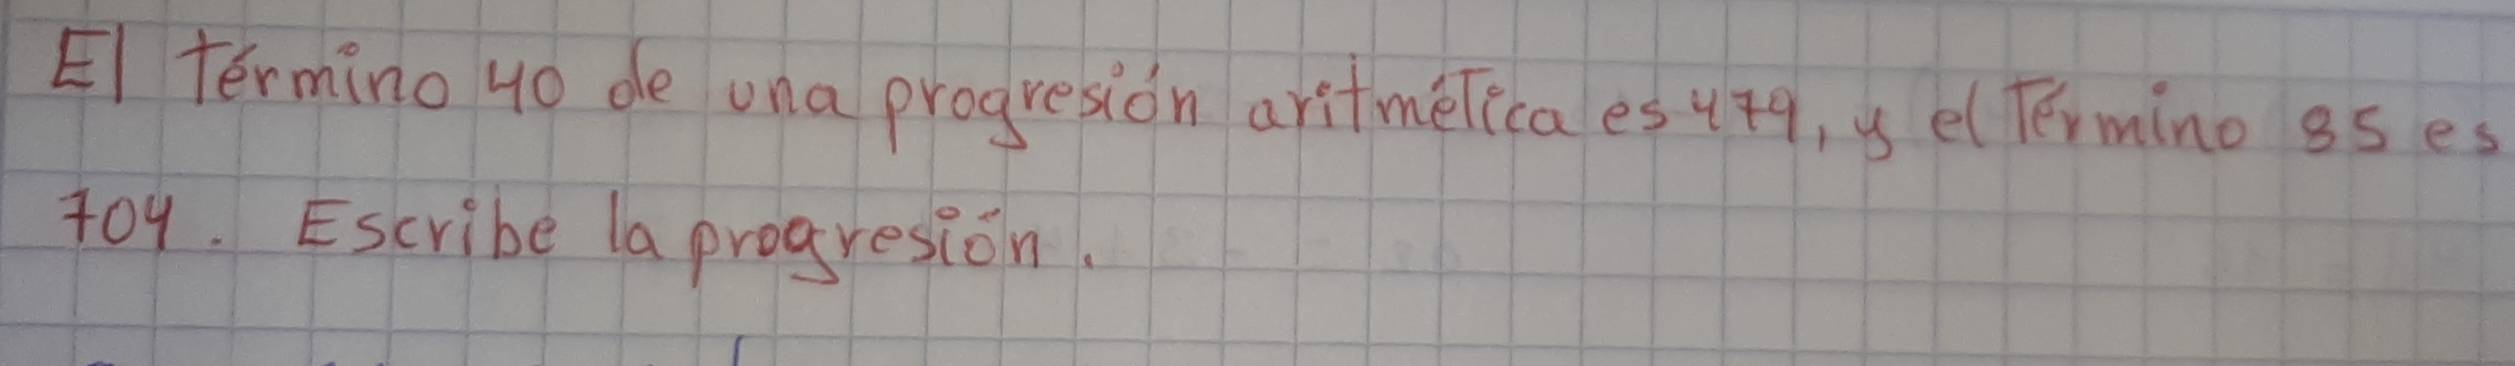 El término 40 de una progresión aritmética es 479, y el término 85 es
704. Escribe la progresión.